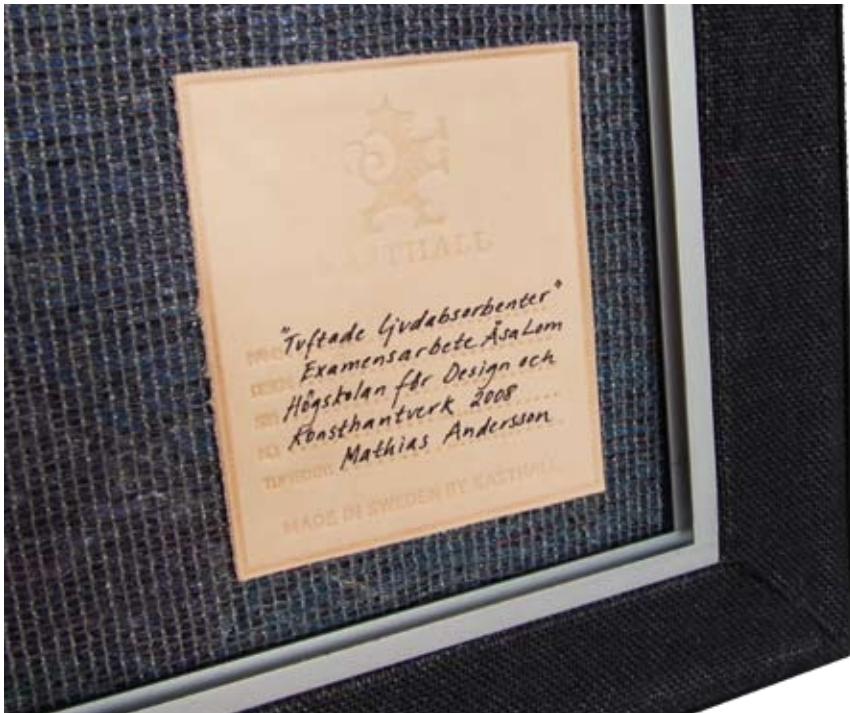 KASTHALL
"Tuftade ljudabsorbenter"
Examensarbete Åsa Lom
Högskolan för Design och
Konsthantverk 2008
Mathias Andersson
MADE IN SWEDEN BY KASTHALL